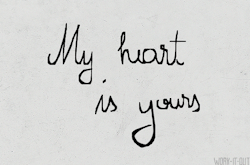 My heart
is yours
WORK-IT-OUT